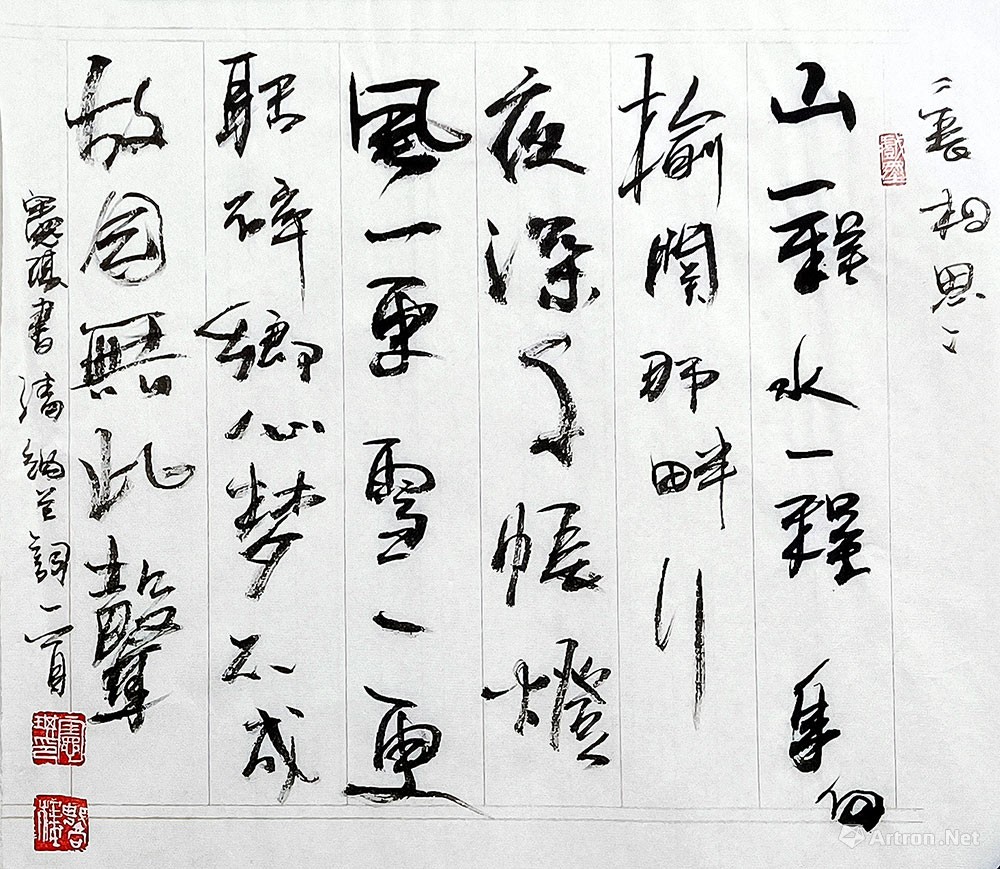 長相思
山一程水一程身向
榆關那畔行
夜深千帳燈
風一更雪一更
聒碎鄉心梦不成
故园無此聲
書清納兰詞一首
Artron.Net